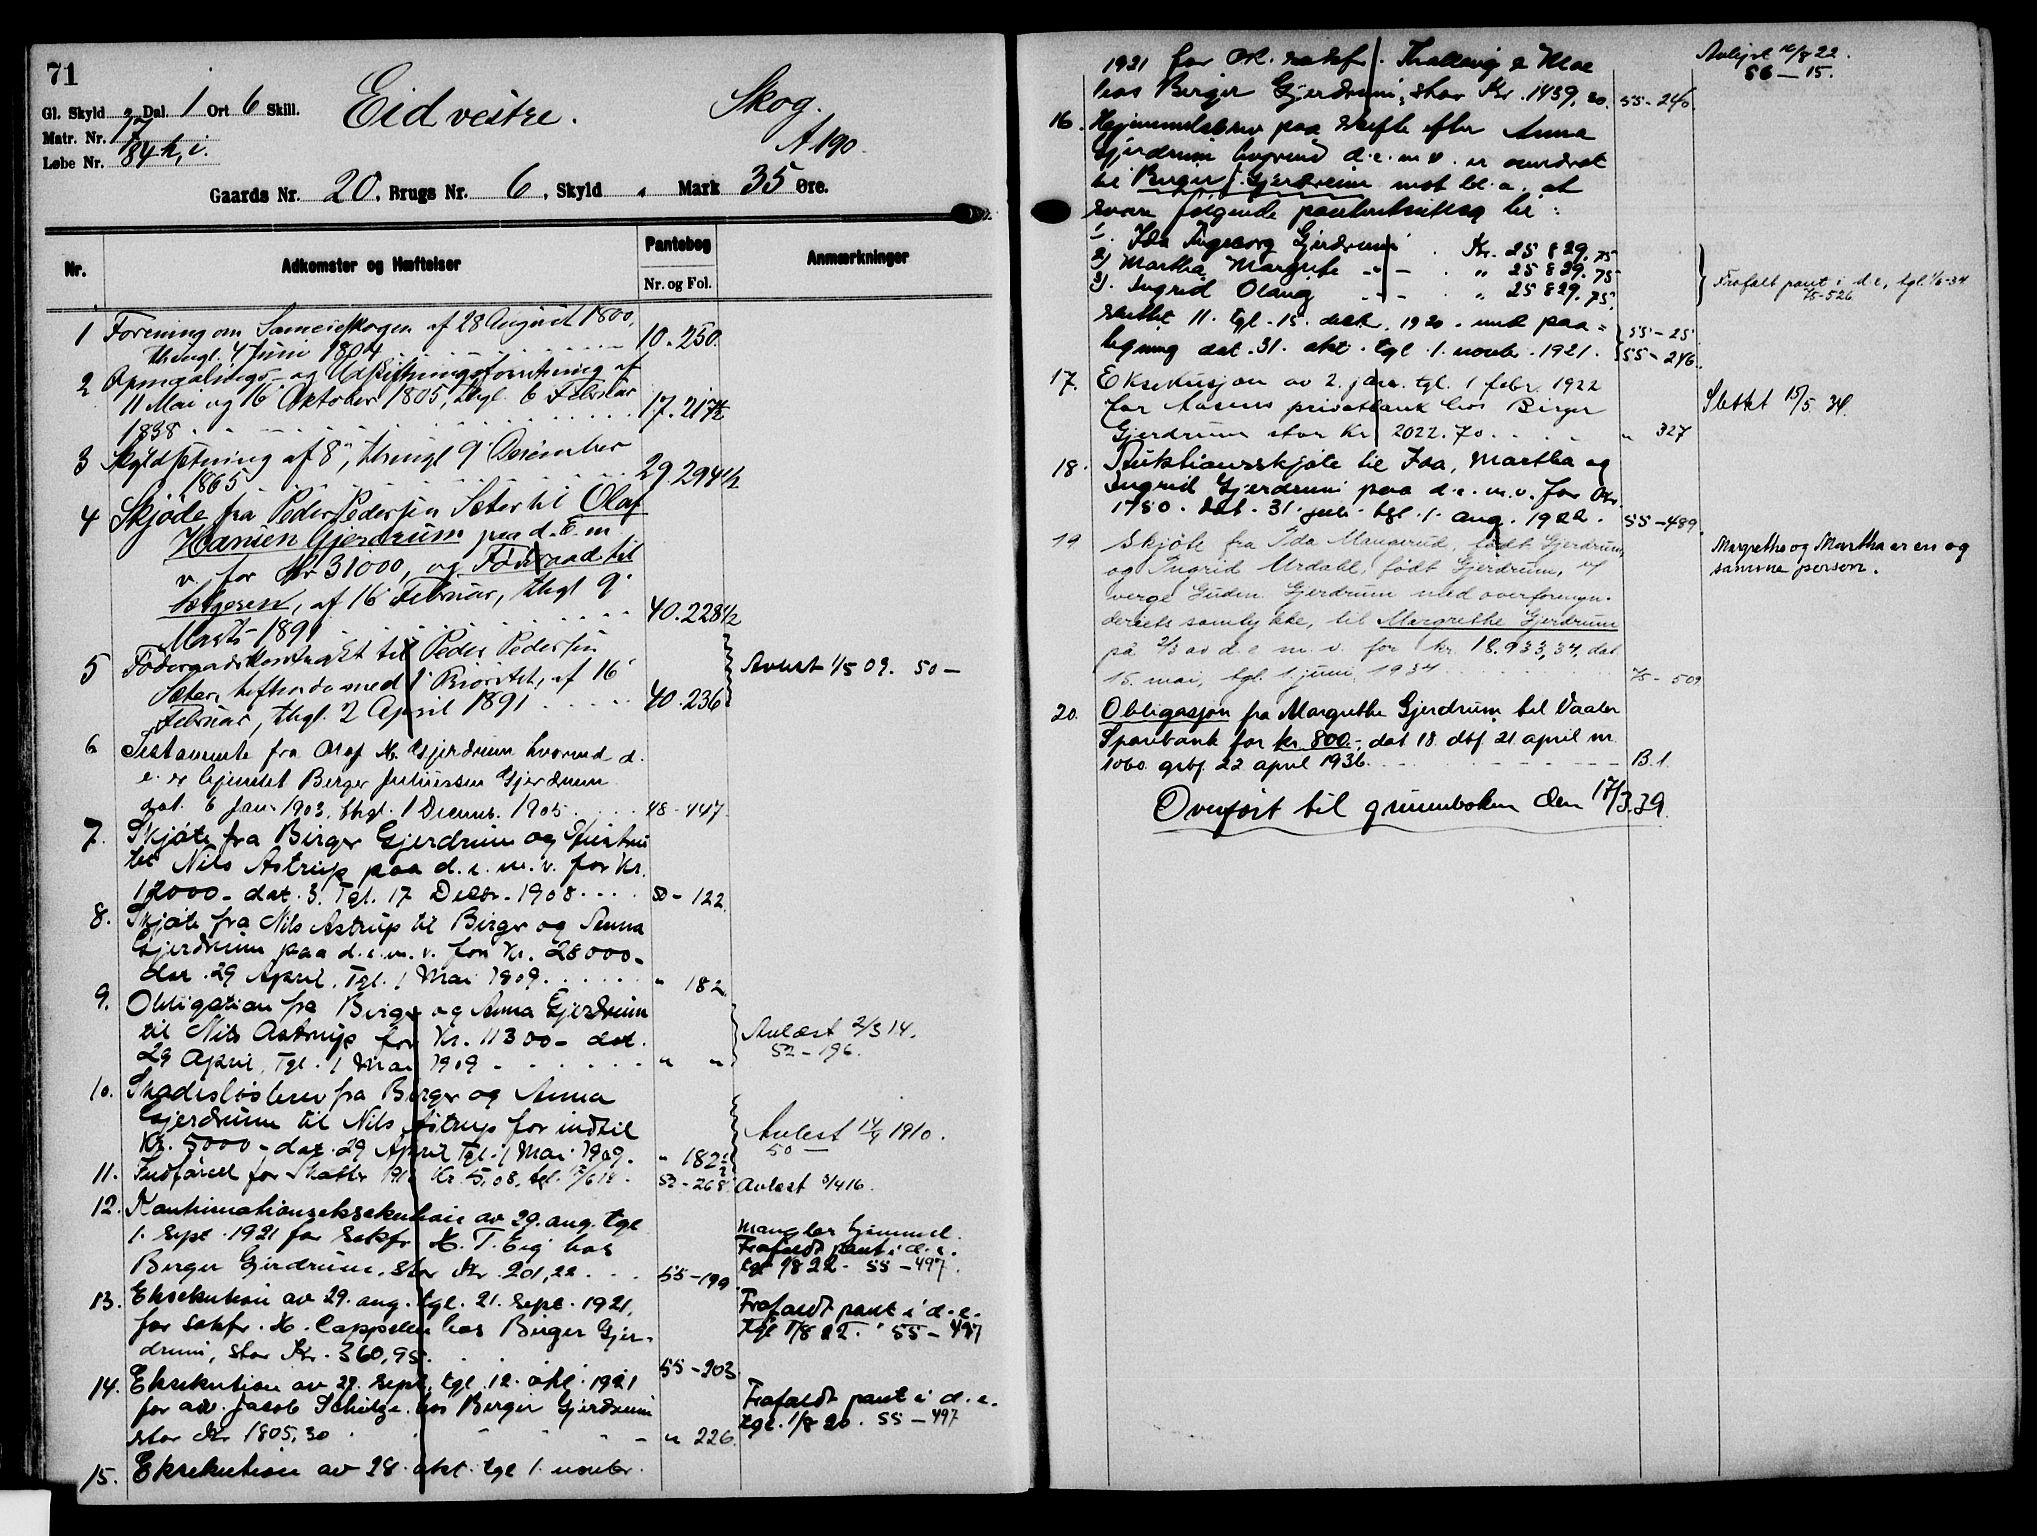 71
Gl. Skyld Dal. 1 Ort 6 Skill.
Matr. Nr. 17
Løbe Nr. 84 h, i.
Eid vestre.
Skog.
A 190
Gaards Nr. 20, Brugs Nr. 6, Skyld „ Mark 35 Øre.
Nr.
Adkomster og Hæftelser
Pantebog
Nr. og Fol.
Anmærkninger
1 Forening om Sameieskogen af 28 August 1800,
thingl. 4 Juni 1804 10. 250.
2 Opmaalings- og Udskiftningsforretning af
11 Mai og 16 Oktober 1805, thgl. 6 Februar
1838 17. 217 1/2
3 Skyldsetning af 8', thingl 9' Desember
1865 29. 294 1/2
4 Skjøde fra Peder Pedersen Sæter til Olaf
Hansen Gjerdrum paa d. E. m
v. for Kr 31000, og Føderaad til
sælgeren, af 16 Februar, thgl 9'
Marts 1891 40. 228 1/2
5 Føderaadskontrakt til Peder Pedersen
Sæter, heftende med 1' Prioritet, af 16'
Februar, thgl. 2 April 1891 40. 236
Avlest 1/5 09. 50 –
6 Testamente fra Olaf H. Gjerdrum hvorved d.
e. er hjemlet Berger Juliussen Gjerdrum
dat. 6 Jan. 1903, thgl. 1 Decemb. 1905 48 - 447.
7. Skjøte fra Birger Gjerdrum og Hustru
til Nils Astrup paa d. e. m. v. for Kr.
12000 - dat. 3. Tgl. 17 Decbr. 1908 50 - 122.
8. Skjøte fra Nils Astrup til Birger og Anna
Gjerdrum paa d. e. m. v. for Kr. 28000 -
dat. 29 April, Tgl. 1 Mai 1909 " 182.
9. Obligation fra Birger og Anna Gjerdrum
til Nils Astrup for Kr. 11300 - dat.
29 April, Tgl. 1 Mai 1909 " "
Avlæst 2/3 14.
52 - 196.
10. Skadesløsbrev fra Birger og Anna
Gjerdrum til Nils Astrup for indtil
Kr. 5000 - dat. 29 April Tgl. 1 Mai 1909. " 182 1/2
Avlest 14/9 1910.
50 —
11. Kr. 5,08, tgl. 52 - 268
Avlest 3/4 16.
12. av 29. aug. tgl
1. sept. 1921 for sakfr. H. T. Eig hos
Berger Gjerdrum, stor Kr. 201,22 55 - 199
Mangler hjemmel.
Frafaldt pant i d. e.
tgl 1/8 22 - 55 - 497.
13. Eksekution av 29. aug. tgl. 21. sept. 1921,
for sakfr. H. Cappelen hos Birger Gjer-
drum, stor Kr. 360,95. 55 - 203
Frafaldt pant i d. e.
tgl 1/8 22. 55 - 497
14. Eksekution av 27. sept. tgl 12. okt. 1921
for adv. Jacob Schetge hos Berger Gjerdrum
stor Kr 1805,30 " 226.
Frafaldt pant i d. e.
tgl. 1/8 20. 55 - 497
15. Eksekution av 28. okt. tgl 1. novbr.
1921 for sakf. Thallaug & Moe
hos Berger Gjerdrum, stor Kr. 1439,20. 55 - 240.
Avlyst 16/8 22.
56 - 15.
16. Hjemmelsbrev paa skifte efter Anna
Gjerdrum hvorved d. e. m v. er overdrat
til Birger J. Gjerdrum mot bl. a. at
svare følgende panteutlæg til:
1. Ida Ingeborg Gjerdrum Kr. 25 829.75
2) Martha Margrete " - " 25 829.75
3). Ingrid Olaug " - " 25 829.75
sluttet 11. tgl. 15. desbr. 1920. med paa- 55 - 25
tegning dat. 31. okt. tgl. 1. novbr. 1921. 55 - 246.
Frafalt pant i d. e, tgl. 1/6-34
7/5-526
17. Eksekusjon av 2. jan. tgl. 1 febr. 1922
for Aasens privatbank hos Birger
Gjerdrum stor Kr. 2022.70 " 327
Slettet 15/5 34.
18. Auktionsskjøte til Ida, Martha og
Ingrid Gjerdrum paa d. e. m. v. for Kr.
1750. dat. 31. juli. tgl. 1. aug. 1922. 55 - 489.
19 Skjøte fra Ida Maugerud, født Gjerdrum
og Ingrid Urdahl, født Gjerdrum, v/
verge Guden Gjerdrum med overformyn-
derets samtykke, til Margrethe Gjerdrum
på 2/3 av d. e. m. v. for kr. 18.933,34, dat
15. mai, tgl. 1. juni 1934 7/5 - 509
Margrethe og Martha er en og
samme person.
20. Obligasjon fra Margrethe Gjerdrum til Vaaler
Sparebank for kr. 800.-, dat 18. dbf. 21. april nr.
1060. grbf. 22 april 1936. B. 1.
Overført til grunnboken den 17/3.39.